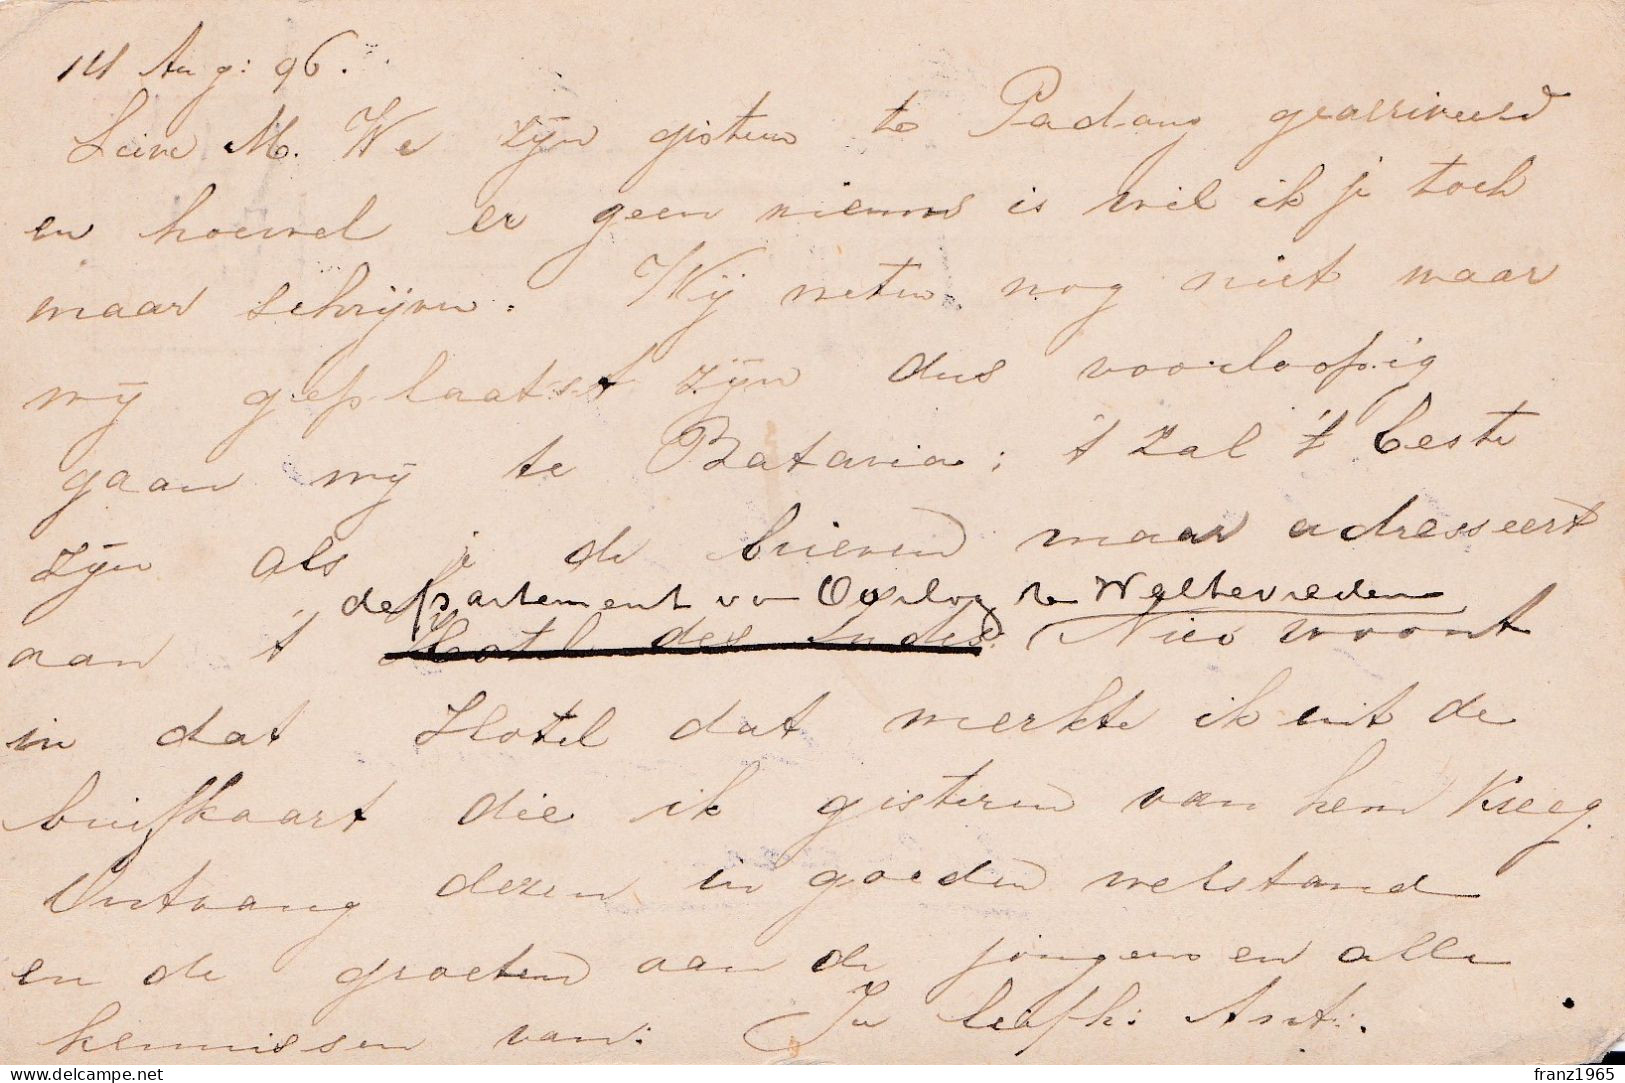 14 Aug: 96.
Lieve M. We zijn gisteren te Padang gearriveerd
en hoewel er geen nieuws is wil ik je toch
maar schrijven. Wij weten nog niet waar
wij geplaatst zijn dus voorloopig
gaan wij te Batavia; 't zal 't beste
zijn als je de brieven maar adresseert
departement v. Oorlog te Weltevreden
aan 't Hotel des Indes. Nico woont
in dat Hotel dat merkte ik uit de
briefkaart die ik gisteren van hem kreeg.
Ontvang dezen in goeden welstand
en de groeten aan de jongens en alle
kennissen van: Je liefh:
delcampe.net
franz1965